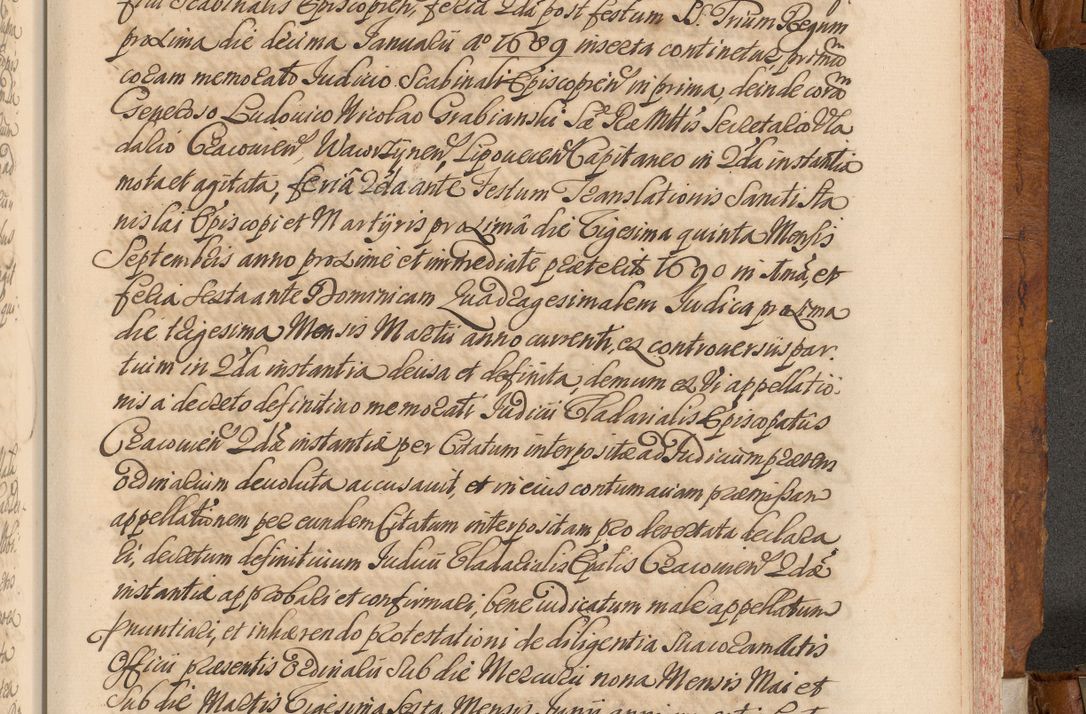 Scabinalis Episcopien, feria 2da post festum S.S. Trium Regum
proxima die decima Januarii ao 1689 inserta continetur, primo
coram memorato Judicio Scabinali Episcopien in prima, deinde coram
Generoso Ludovico Nicolao Grabianski Sae Rae Mttis Secretario Vla
dario Cracovien, Wawrzynen, Lipovecen Capitaneo in 2da instantia
mota et agitata, feria 2da ante Festum Translationis Sancti Sta
nislai Episcopi et Martyris proxima die Vigesima quinta Mensis
Septembris anno proxime et immediate praeterito 1690 in Ima, et
feria sexta ante Dominicam Quadragesimalem Judica proxima
die trigesima Mensis Martii anno currenti, ex controversiis par
tium in 2da instantia decisa et definita, demum ex vi appellatio
nis a decreto definitivo memorati Judicii Vladarialis Episcopatus
Cracovien 2dae instantiae per Citatum interpositae ad Judicium praesens
Ordinarium devoluta accusavit, et in eius contumaciam praemissam
appellationem per eundem Citatum interpositam pro deserta declara
ri, decretum definitivum Judicii Vladarialis Epalis Cracovien 2dae
instantiae approbari et confirmari, bene iudicatum male appellatum
pnuntiari, et inhaerendo protestationi de diligentia sua coram Actis
Officii praesentis Ordinarii sub die Mercurii nona Mensis Mai et
sub die Martis Vigesima sexta Mensis Junii anni